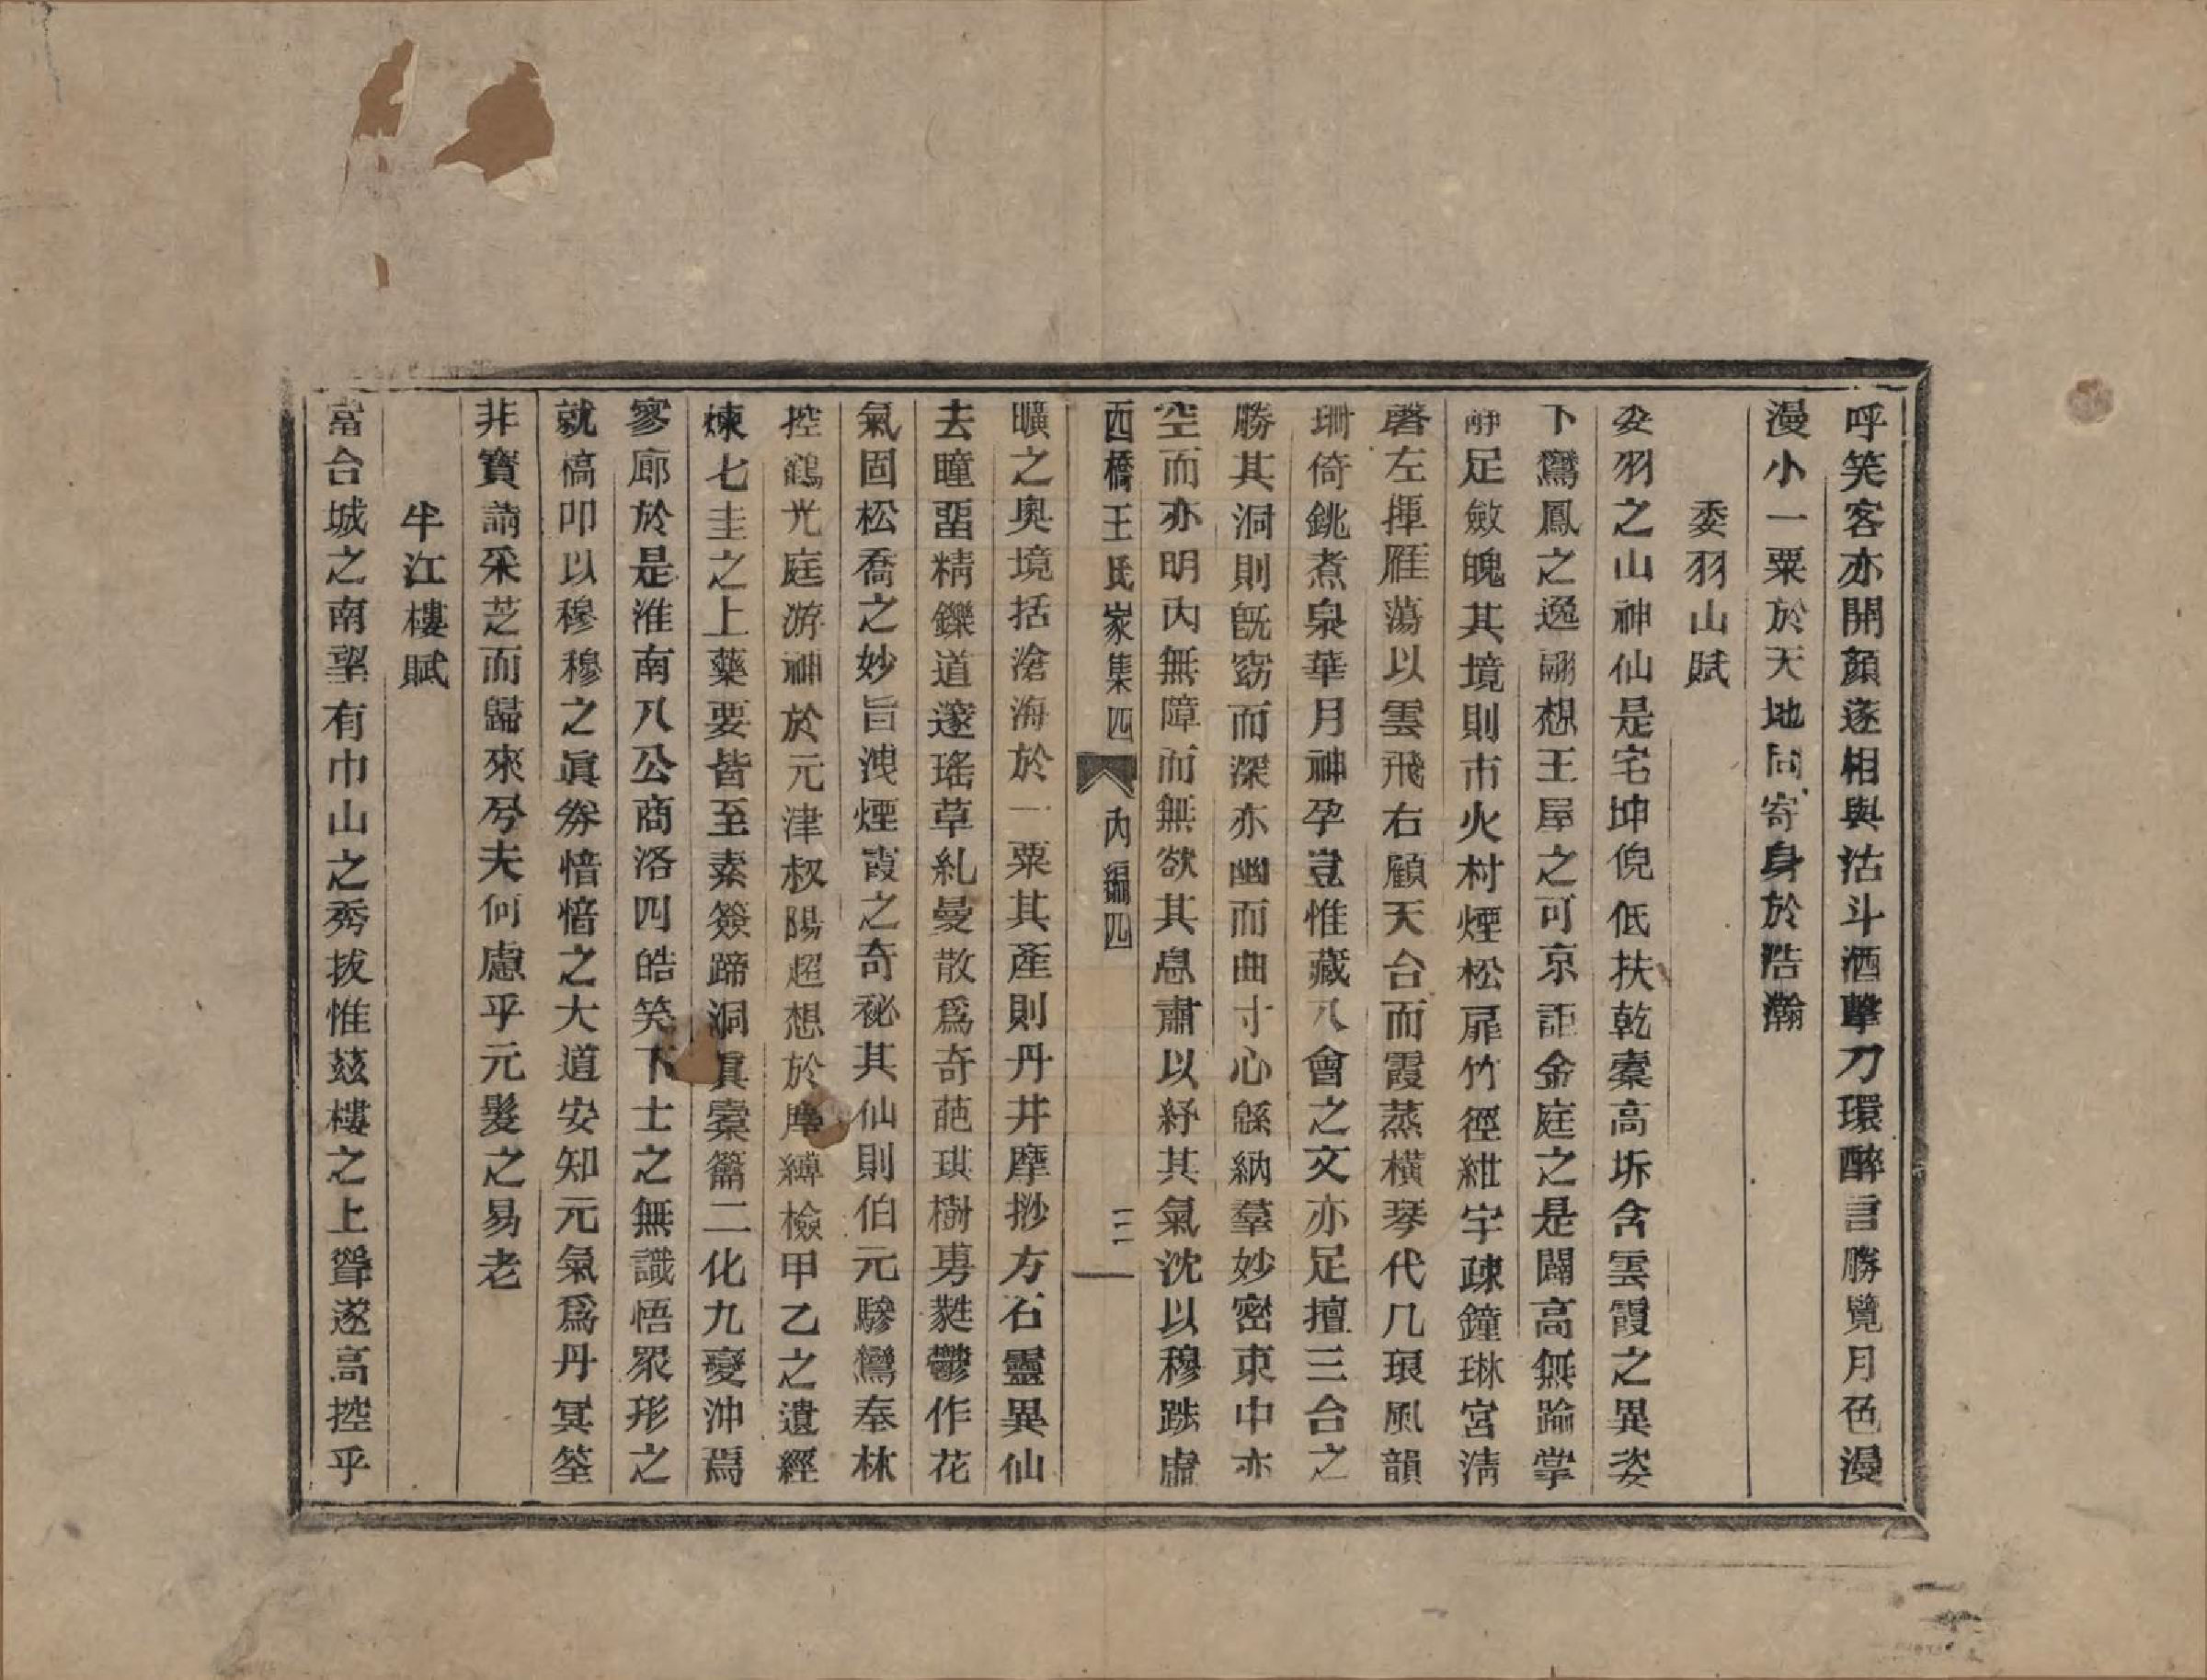 呼笑客亦開顏遂相與沽斗酒擊刀環醉言勝覽月色漫
漫小一粟於天地同寄身於浩瀚
委羽山賦
委羽之山神仙是宅坤倪低扶乾橐高坼含雲霞之異姿
下鸞鳳之逸翮想王屋之可京詎金庭之是闢高無踰掌
靜足斂魄其境則市火村煙松扉竹徑紺宇疎鐘琳宮清
磬左揮雁蕩以雲飛右顧天台而霞蒸橫琴代几琅風韻
珊倚銚煮泉華月神孕豈惟藏八會之文亦足擅三台之
勝其洞則旣窈而深亦幽而曲寸心緜納羣妙密束中亦
空而亦明內無障而無欲其息肅以紓其氣沈以穆跡虛
西橋王氏家集四 內編四 二
曠之奧境括滄海於一粟其產則丹井摩挱方石靈異仙
去瞳罶精鑠道邃瑤草糺曼散爲奇葩琪樹專蕤鬱作花
氣固松喬之妙旨洩煙霞之奇秘其仙則伯元驂鸞奉林
控鶴光庭游神於元津叔陽超想於摩縛檢甲乙之遺經
煉七圭之上藥要皆至素簽蹄洞眞橐籥二化九變沖焉
寥廓於是淮南八公商洛四皓笑下士之無識悟眾形之
就槁叩以穆穆之眞券愔愔之大道安知元氣爲丹冥筌
非寶請采芝而歸來兮夫何慮乎元髮之易老
半江樓賦
當台城之南望有巾山之秀拔惟玆樓之上聳遂高控乎